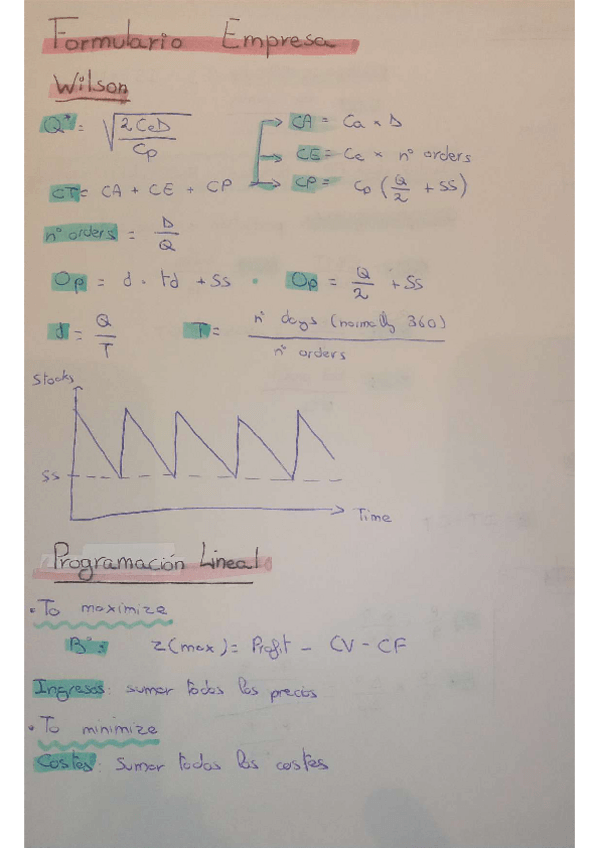 Formulario Empresa
Wilson
Q* = √(2CeD / Cp)
CA = Ca × D
CE = Ce × nº orders
CT = CA + CE + CP
CP = Cp (Q/2 + SS)
nº orders = D/Q
Op = d · td + SS · Op = Q/2 + SS
d = Q/T T = nº days (normally 360) / nº orders
Stocks
SS
Time
Programación Lineal
· To maximize
Bº: Z(max) = Profit - CV - CF
Ingresos: sumar todos los precios
· To minimize
Costes: Sumar todos los costes